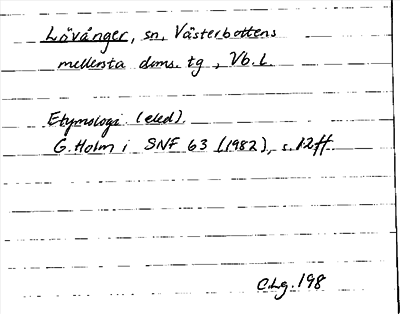 Lövånger, sn, Västerbottens
mellersta doms. tg, Vb. l.
Etymologi (eled).
G. Holm i SNF 63 (1982), s. 12 ff.
C.Lg. 198